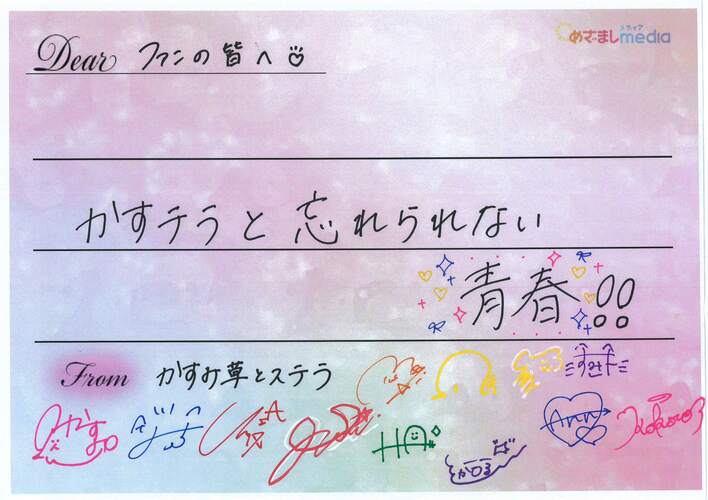 Dear ファンの皆へ
メディア
めざましmedia
かすテラと忘れられない
青春!!
From かすみ草とステラ
Ann
Kokoro